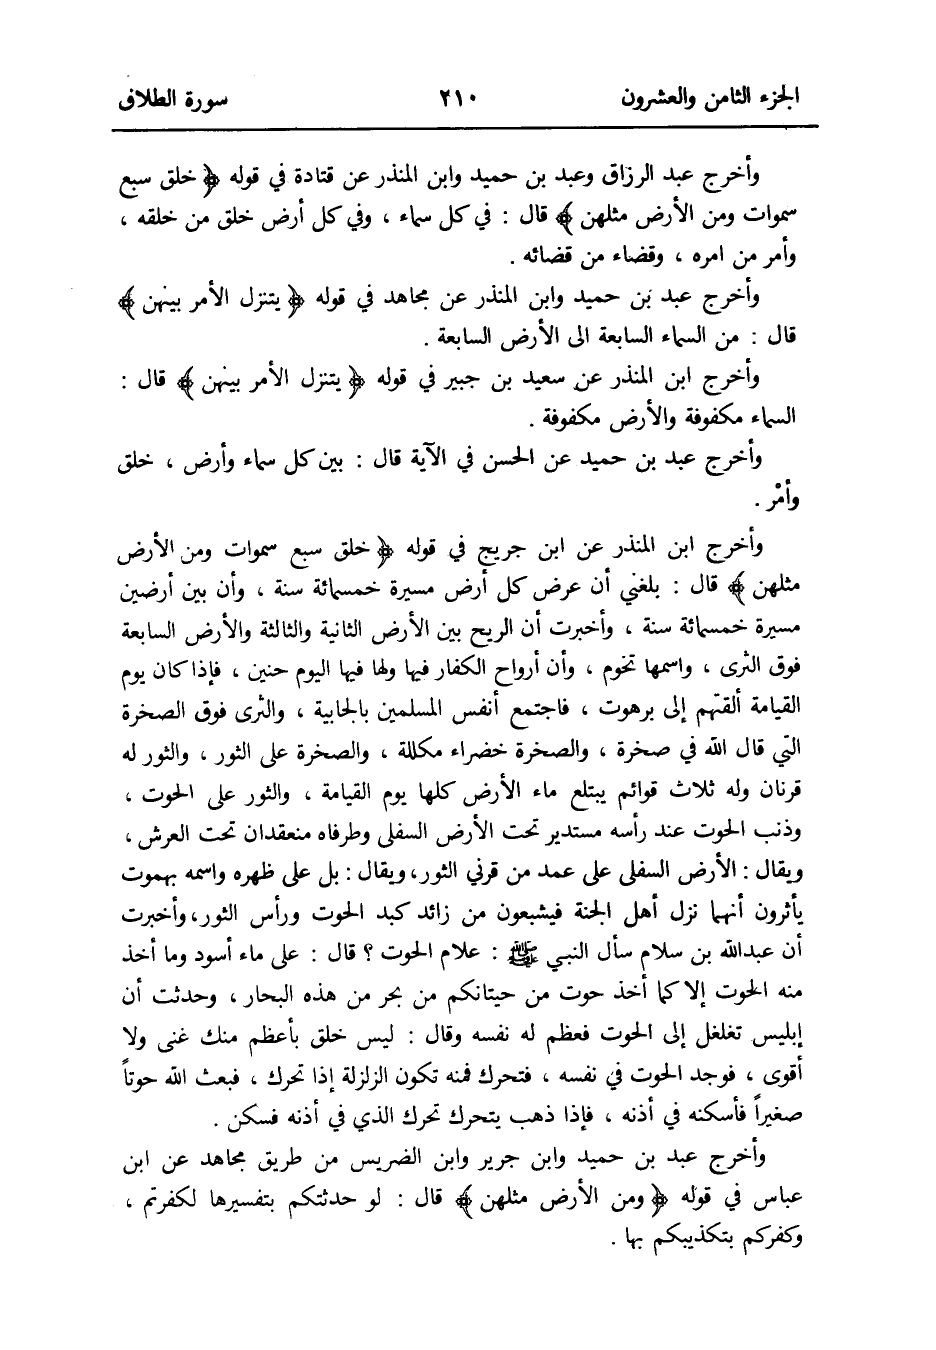 الجزء الثامن والعشرون ٢١٠ سورة الطلاق
وأخرج عبد الرزاق وعبد بن حميد وابن المنذر عن قتادة في قوله ﴿ خلق سبع
سموات ومن الأرض مثلهن ﴾ قال : في كل سماء ، وفي كل أرض خلق من خلقه ،
وأمر من امره ، وقضاء من قضائه .
وأخرج عبد بن حميد وابن المنذر عن مجاهد في قوله ﴿ يتنزل الأمر بينهن ﴾
قال : من السماء السابعة الى الأرض السابعة .
وأخرج ابن المنذر عن سعيد بن جبير في قوله ﴿ يتنزل الأمر بينهن ﴾ قال :
السماء مكفوفة والأرض مكفوفة .
وأخرج عبد بن حميد عن الحسن في الآية قال : بين كل سماء وأرض ، خلق
وأمْر .
وأخرج ابن المنذر عن ابن جريج في قوله ﴿ خلق سبع سموات ومن الأرض
مثلهن ﴾ قال : بلغني أن عرض كل أرض مسيرة خمسمائة سنة ، وأن بين أرضين
مسيرة خمسمائة سنة ، وأخبرت أن الريح بين الأرض الثانية والثالثة والأرض السابعة
فوق الثرى ، واسمها تخوم ، وأن أرواح الكفار فيها ولها فيها اليوم حنين ، فإذا كان يوم
القيامة ألقتهم إلى برهوت ، فاجتمع أنفس المسلمين بالجابية ، والثرى فوق الصخرة
التي قال الله في صخرة ، والصخرة خضراء مكللة ، والصخرة على الثور ، والثور له
قرنان وله ثلاث قوائم يبتلع ماء الأرض كلها يوم القيامة ، والثور على الحوت ،
وذنب الحوت عند رأسه مستدير تحت الأرض السفلى وطرفاه منعقدان تحت العرش ،
ويقال : الأرض السفلى على عمد من قرني الثور، ويقال : بل على ظهره واسمه بهموت
يأثرون أنهما نزل أهل الجنة فيشبعون من زائد كبد الحوت ورأس الثور، وأخبرت
أن عبدالله بن سلام سأل النبي ﷺ : علام الحوت ؟ قال : على ماء أسود وما أخذ
منه الحوت إلا كما أخذ حوت من حيتانكم من بحر من هذه البحار ، وحدثت أن
إبليس تغلغل إلى الحوت فعظم له نفسه وقال : ليس خلق بأعظم منك غنى ولا
أقوى ، فوجد الحوت في نفسه ، فتحرك فمنه تكون الزلزلة إذا تحرك ، فبعث الله حوتاً
صغيراً فأسكنه في أذنه ، فإذا ذهب يتحرك تحرك الذي في أذنه فسكن .
وأخرج عبد بن حميد وابن جرير وابن الضريس من طريق مجاهد عن ابن
عباس في قوله ﴿ ومن الأرض مثلهن ﴾ قال : لو حدثتكم بتفسيرها لكفرتم ،
وكفركم بتكذيبكم بها .